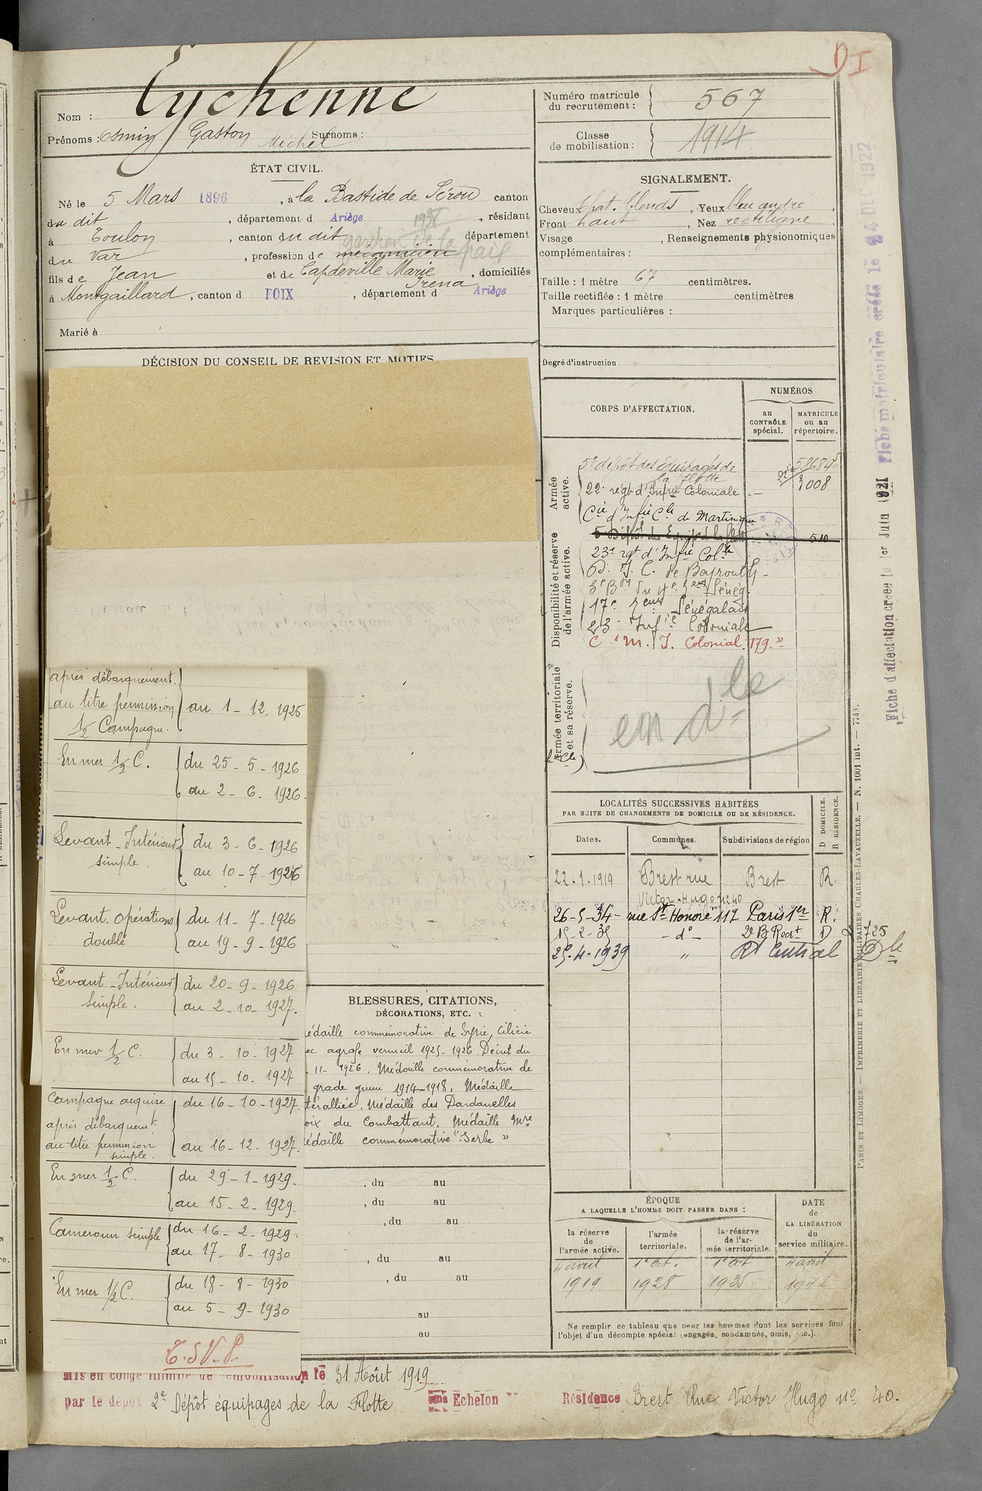 DI
Eychenne
Nom :
Prénoms : Osmin Gaston Michel Surnoms :
Numéro matricule du recrutement : 567
Classe de mobilisation : 1914
ÉTAT CIVIL.
Né le 5 Mars 1896, à la Bastide de Sérou canton
du dit, département d Ariège, résidant
à Toulon, canton du dit département
du Var, profession de mécanicien
1935
fils de Jean et de Capdeville Marie Irena, domiciliés
à Montgaillard, canton d FOIX, département d Ariège
Marié à
SIGNALEMENT.
Cheveux chat. blonds, Yeux bleu ardre,
Front haut, Nez rectiligne
Visage , Renseignements physionomiques
complémentaires :
Taille : 1 mètre 67 centimètres.
Taille rectifiée : 1 mètre centimètres
Marques particulières :
Degré d'instruction
DÉCISION DU CONSEIL DE REVISION ET MOTIFS
CORPS D'AFFECTATION.
NUMÉROS
au CONTRÔLE spécial.
MATRICULE ou au répertoire.
Armée active.
5e dépôt des équipages de la flotte 59684
22e régt d'Infrie Coloniale 3008
Cie d'Infie Cle de Martinique
Disponibilité et réserve de l'armée active.
5 Dépôt des Equip. de la flotte 510
23e rgt d'Infie Colle
D. I. C. de Beyrouth
17e Sénégalais
23e Infie Coloniale
C. M. I. Colonial 179
Armée territoriale et sa réserve.
em dle
LOCALITÉS SUCCESSIVES HABITÉES
PAR SUITE DE CHANGEMENTS DE DOMICILE OU DE RÉSIDENCE.
Dates. Communes. Subdivisions de région D DOMICILE. R RÉSIDENCE.
22.1.1919 Brest rue Victor-Hugo n° 40 Brest R.
26-5-34 rue St Honoré 117 Paris 1er R.
15-2-35 -d°- D
25-4-1939 " Rt Central Dle
après débarquement
au titre permission
1/2 Campagne. au 1-12.1925
En mer 1/2 C. du 25-5-1926
au 2-6.1926.
Levant-Intérieur simple. du 3-6-1926
au 10-7-1926
Levant. opérations double du 11-7-1926
au 19-9-1926
Levant-Intérieur simple. du 20-9-1926
au 2-10-1927.
En mer 1/2 C. du 3-10-1927
au 15-10.1927
Campagne acquise du 16-10-1927
après débarquemt
au titre permission simple. au 16-12-1927.
En mer 1/2 C. du 29-1-1929.
au 15-2-1929.
Cameroun simple du 16-2-1929.
au 17-8-1930
En mer 1/2 C. du 18-8-1930
au 5-9-1930
T.S.V.P.
BLESSURES, CITATIONS,
DÉCORATIONS, ETC. :
édaille commémorative de Syrie, Cilicie
ec agrafe vermeil 1925-1926 Décret du
11-1926. Médaille commémorative de
grade guerre 1914-1918, Médaille
teralliée, Médaille des Dardanelles
oix du Combattant. Médaille Mre
édaille commémorative "Serbe"
, du au
, du au
, du au
, du au
, du au
au
au
ÉPOQUE
A LAQUELLE L'HOMME DOIT PASSER DANS :
la réserve de l'armée active.
l'armée territoriale.
la réserve de l'armée territoriale.
DATE de LA LIBÉRATION du service militaire.
4 avril 1919
1er at. 1928
1er at 1935
4 avril
Ne remplir ce tableau que pour les hommes dont les services font
l'objet d'un décompte spécial (engagés, condamnés, omis, etc.).
Mis en congé illimité de démobilisation le 31 Août 1919
par le dépôt 2e Dépôt équipages de la Flotte Echelon Résidence Brest Rue Victor Hugo n° 40.
PARIS ET LIMOGES. — IMPRIMERIE ET LIBRAIRIE MILITAIRES CHARLES-LAVAUZELLE. — N. 1001 int. — 7743.
Fiche d'affectation créée le 1er Juin 1921
Fiche matriculaire créée le 24 DEC 1922